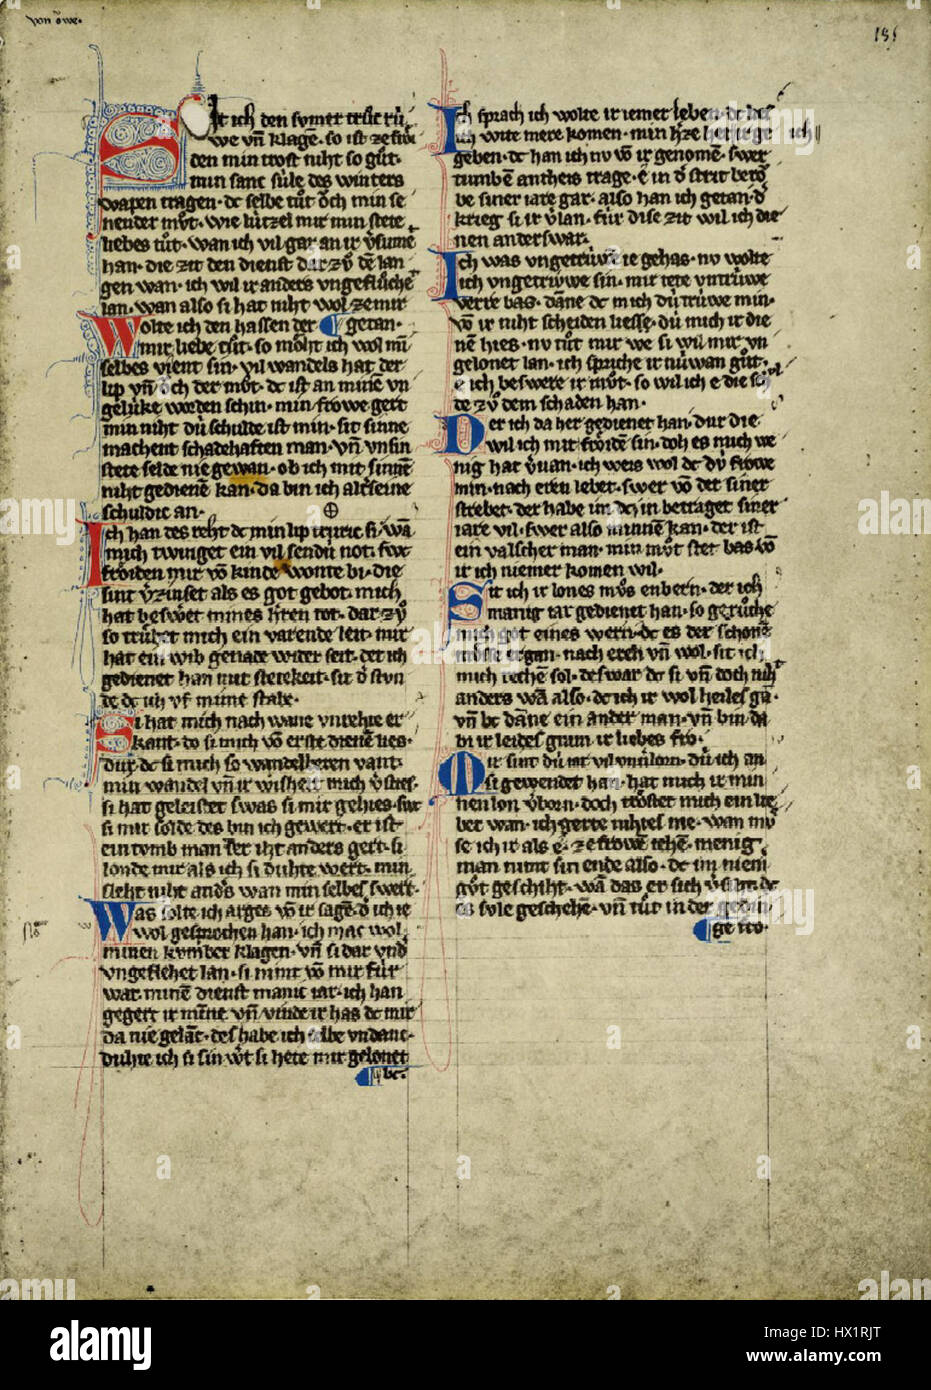 von owe.
Sit ich den sumer truc rú
we vñ klage· so ist ze frŏi
den min trost niht so gůt·
min sanc súle des winters
wapen tragen· dc selbe tůt ŏch min se
nender můt· wie lútzel mir min stete
liebes tůt· wan ich vil gar an ir v̄sumē
han· die zit den dienst dar zů dē lan
gen wan· ich wil ir anders ungeflůchet
lan· wan also si hat niht wol ze mir
Wolte ich den hassen der getan·
mir liebe tůt· so möht ich wol mī
selbes vient sin· vil wandels hat der
lip vñ ŏch der můt· dc ist an mime vn
gelúke worden schin· min frowe gert
min niht dú schulde ist min· sit sinne
machent seldehaften man· vñ vnsin
stete selde nie gewan· ob ich mit sinnē
niht gedienē kan· da bin ich alterseine
schuldic an·
Ich han des reht dc min lip truric si· wā
mich twinget ein vil sendú not· swc
frŏiden mir vō kinde wonte bi· die
sint v̄zinset als es got gebot· mich
hat beswert mines h̄ren tot· dar zů
so trůbet mich ein varende leit· mir
hat ein wib genade widerseit· der ich
gedienet han mit stetekeit· sit d̄ stvn
de dc ich vf mime stabe
Si hat mich nach wane unrehte er
kant· do si mich vō erste dienen lies·
dur dc si mich so wandelberen vant·
min wandel vñ ir wisheit mich v̄sties·
si hat geleistet swas si mir gehies· swc
si mir solde des bin ich gewert· er ist
ein tumb man der iht anders gert· si
londe mir als ich si duhte wert· min
sleht niht anders wan min selbes swert·
Was solte ich arges vō ir sagē· d̄ ich ie
wol gesprochen han· ich mac wol
minen kumber klagen· vñ si dar vnd̄
ungeflehet lan· si nimt vō mir fúr
war minē dienst manic iar· ich han
gegert ir minne vñ vinde ir has· dc mir
da nie gelāc· des habe ich selbe undanc·
duhte ich si sin w̄t si hete mir gelonet
bc·
185
Ich sprach ich wolte ir iemer leben· dc lies
ich wite mere komen· min h̄ze het ir ge
geben· dc han ich nv vō ir genomē· swer
tumbē antheis trage· d̄ la d̄ strit betǒ
be siner iare gar· also han ich getan· d̄
krieg si ir v̄lan· fúr dise zit wil ich die
nen anderswar·
Ich was vngetrúwē ie gehas· nv wolte
ich ungetrúwe sin· mir tete untrúwe
verre bas· dāne dc mich dú trúwe min·
vō ir niht scheiden liesse· dú mich ir die
nē hies· nv tůt mir we si wil mir vn
gelonet lan· ich spriche ir núwan gůt·
e ich beswere ir můt· so wil ich e die schul
de zů dem schaden han·
Der ich da her gedienet han· dur die
wil ich mit frŏidē sin· doh es mich we
nig hat v̄uan· ich weis wol dc dú frowe
min· nach eren lebet· swer vō der siner
strebet· der habe im dc· in betraget siner
iare vil· swer also minnē kan· der ist
ein valscher man· min můt stet bas· vō
ir ich niemer komen wil·
Sit ich ir lones můs enbern· der ich
manig iar gedienet han· so gerůche
mich got eines wern· dc es der schonē
můsse ergan· nach eren vñ wol· sit ich
mich rechē sol· deswar dc si vñ doch niht
anders wā also· dc ich ir wol heiles gā·
vñ bc dāne ein ander man· vñ bin da
bi ir leides gram ir liebes fro·
Mir sint dú iar vil vnv̄lorn· dú ich an
si gewendet han· hat mich ir min
nen lon v̄born· doch trŏstet mich ein lie
ber wan· ich gerte nihtes me· wan mů
se ich ir als e· ze frowē iehē· menig
man nimt sin ende also· dc im niem̄
gůt geschiht· wā das er sich v̄siht· dc
es súle geschehē· vñ tůt in der gedin
ge fro·
alamy
Image ID: HX1RJT
www.alamy.com